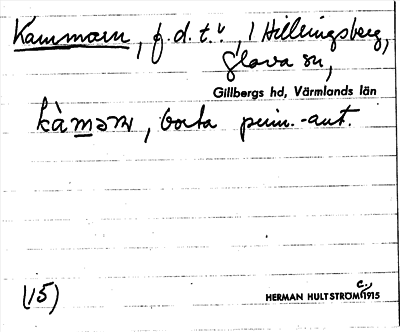 Kammarn, f.d.t., 1 Hillringsberg,
Glava sn,
Gillbergs hd, Värmlands län
kàmarn, borta
(15)
HERMAN HULTSTRÖM c. 1915